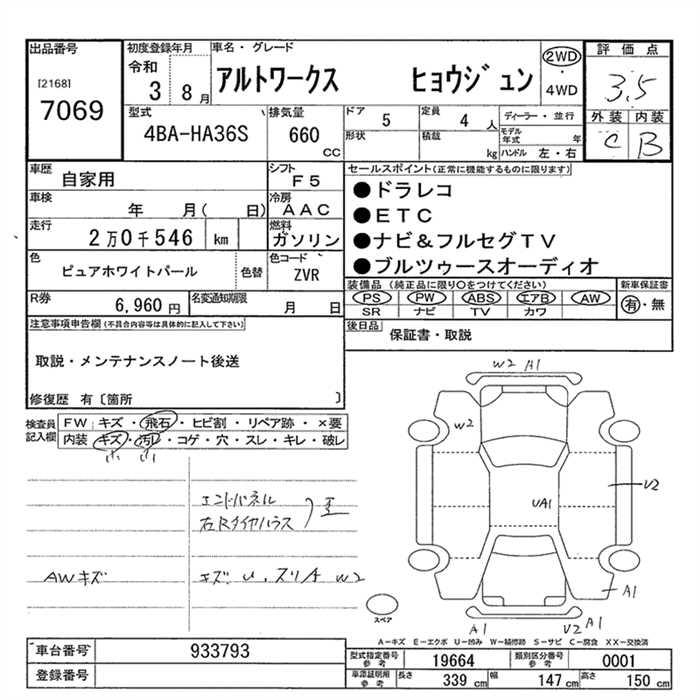 出品番号
[2168]
7069
初度登録年月
令和 3 8月
車名・グレード
アルトワークス ヒョウジュン
2WD
・
4WD
評価点
3.5
外装 内装
C B
型式
4BA-HA36S
排気量
660
CC
ドア
5
定員
4 人
形状
積載
kg
ディーラー・並行
モデル年式 年
ハンドル 左・右
車歴
自家用
シフト
F5
車検
年 月( 日)
冷房
AAC
走行
2万0千546 km
燃料
ガソリン
色
ピュアホワイトパール
色替
色コード
ZVR
R券
6,960円
名変通知期限
月 日
セールスポイント(正常に機能するものに限ります)
●ドラレコ
●ETC
●ナビ&フルセグTV
●ブルツゥースオーディオ
装備品 (純正品に限り○をつけてください)
PS PW ABS エアB AW
SR ナビ TV カワ
新車保証書
有・無
後日品
保証書・取説
注意事項申告欄(不具合内容等は具体的に記入して下さい)
取説・メンテナンスノート後送
修復歴 有〔箇所 〕
検査員記入欄
FW キズ・飛石・ヒビ割・リペア跡・×要
内装 キズ・汚レ・コゲ・穴・スレ・キレ・破レ
小 小
エンドパネル
右Rタイヤハウス
歪
AWキズ
エズ U、スリA W2
W2 A1
W2
UA1
U2
A1
A1
U2 A1
スペア
A-キズ E-エクボ U-凹み W-補修跡 S-サビ C-腐食 XX-交換済
車台番号
933793
登録番号
型式指定番号
参考
19664
類別区分番号
参考
0001
車庫証明用
参考
長さ
339 cm
幅
147 cm
高さ
150 cm